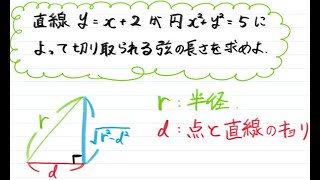 直線 y=x+2 が 円 x²+y²=5 に
よって切り取られる弦の長さを求めよ.
r
√r²-d²
d
r:半径.
d:点と直線のキョリ